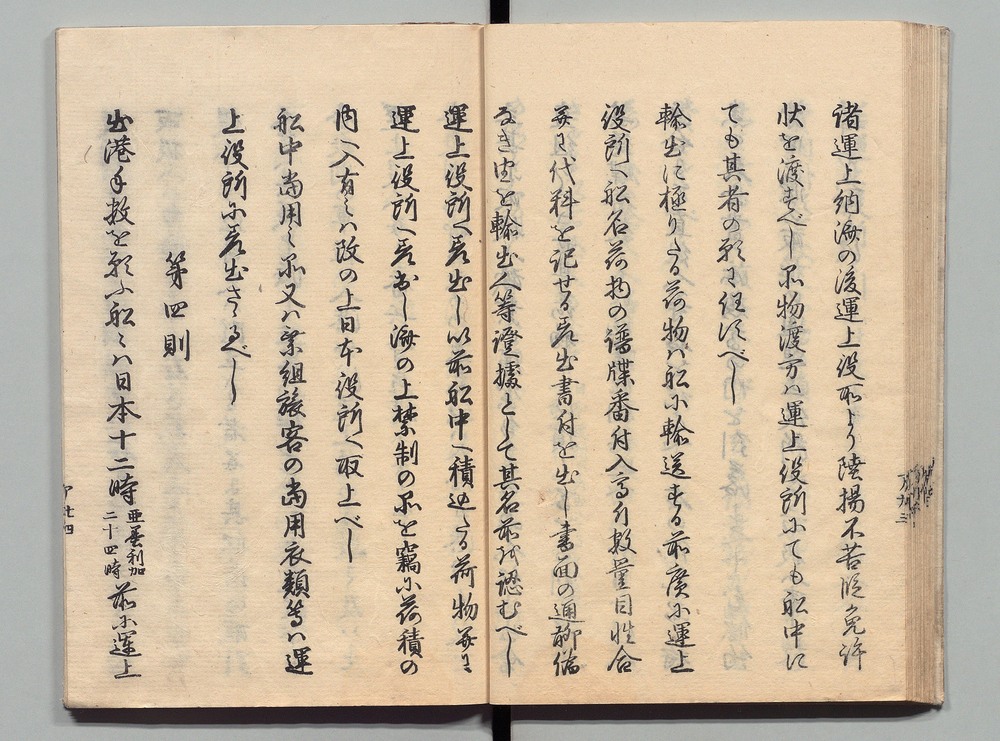 諸運上納済の後運上役所より陸揚不苦段免許
状を渡すべし品物渡方ハ運上役所にても船中に
ても其者の願に任すべし
輸出に極りたる荷物ハ船に輸送する前広に運上
役所へ船名荷物の譜牒番付入高斤数量目性合
并に代料を記せる差出書付を出し書面の通聊偽
なき由を輸出人等證據として其名前を認むべし
運上役所へ差出し以前船中へ積込たる荷物并に
運上役所へ差出し済の上禁制の品を竊に荷積の
内へ入有之ハ改の上日本役所へ取上べし
船中当用之品又ハ乗組旅客の当用衣類等ハ運
上役所に差出さゝるべし
第四則
出港手数を願ふ船々ハ日本十二時
亜墨利加
二十四時
前に運上